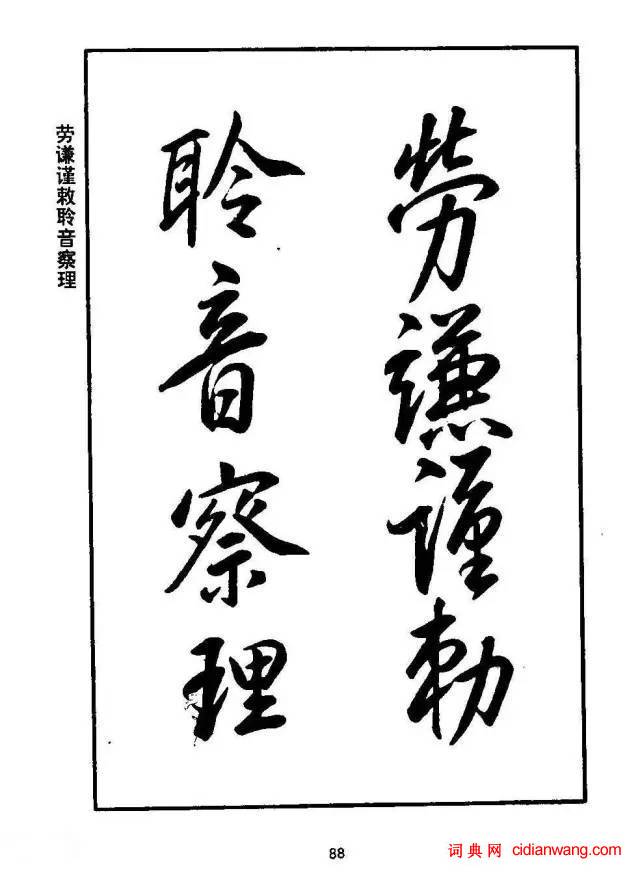 勞謙謹勅
聆音察理
劳谦谨敕聆音察理
88
词典网 cidianwang.com